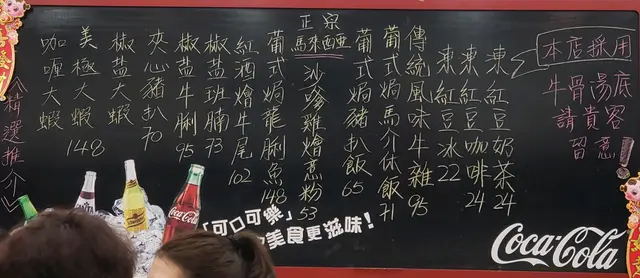 本店採用
牛骨湯底
請貴客
留意！
凍紅豆奶茶 24
凍紅豆咖啡 24
凍紅豆冰 22
傳統風味牛雜 95
葡式焗馬介休飯 71
葡式焗豬扒飯 65
正宗
馬來西亞
沙嗲雞燴意粉 53
葡式焗龍脷魚 148
紅酒燴牛尾 102
椒盐班腩 73
椒盐牛脷 95
夾心豬扒 70
椒盐大蝦
美極大蝦 148
咖喱大蝦
《精選推介》
「可口可樂」
美食更滋味！
Coca-Cola
Coca-Cola